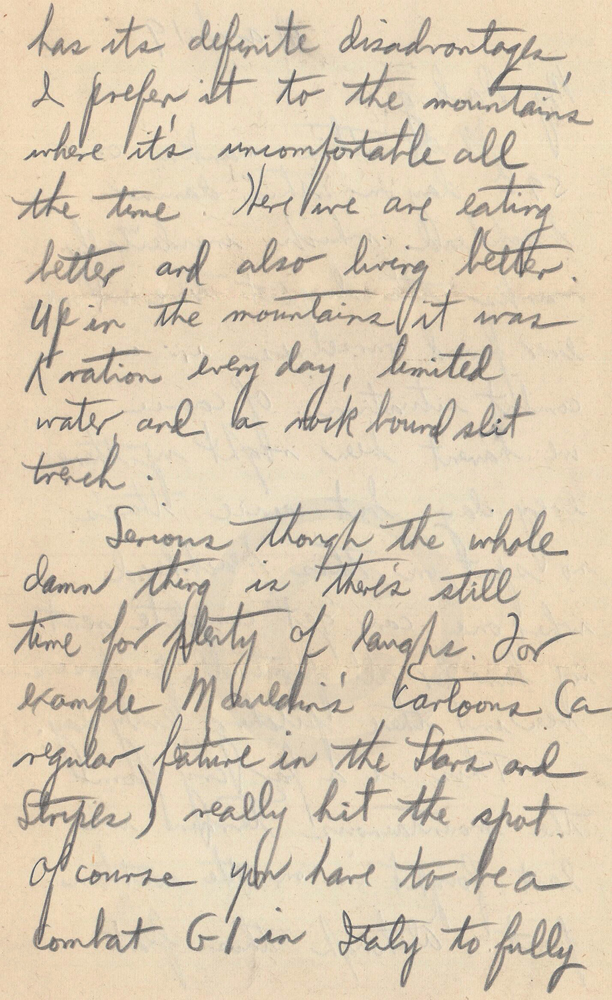 has its definite disadvantages,
I prefer it to the mountains
where it's uncomfortable all
the time. Here we are eating
better and also living better.
Up in the mountains it was
K ration every day, limited
water, and a rock bound slit
trench.
Serious though the whole
damn thing is there's still
time for plenty of laughs. For
example Mauldin's cartoons (a
regular fature in the Stars and
Stripes) really hit the spot.
Of course you have to be a
combat GI in Italy to fully